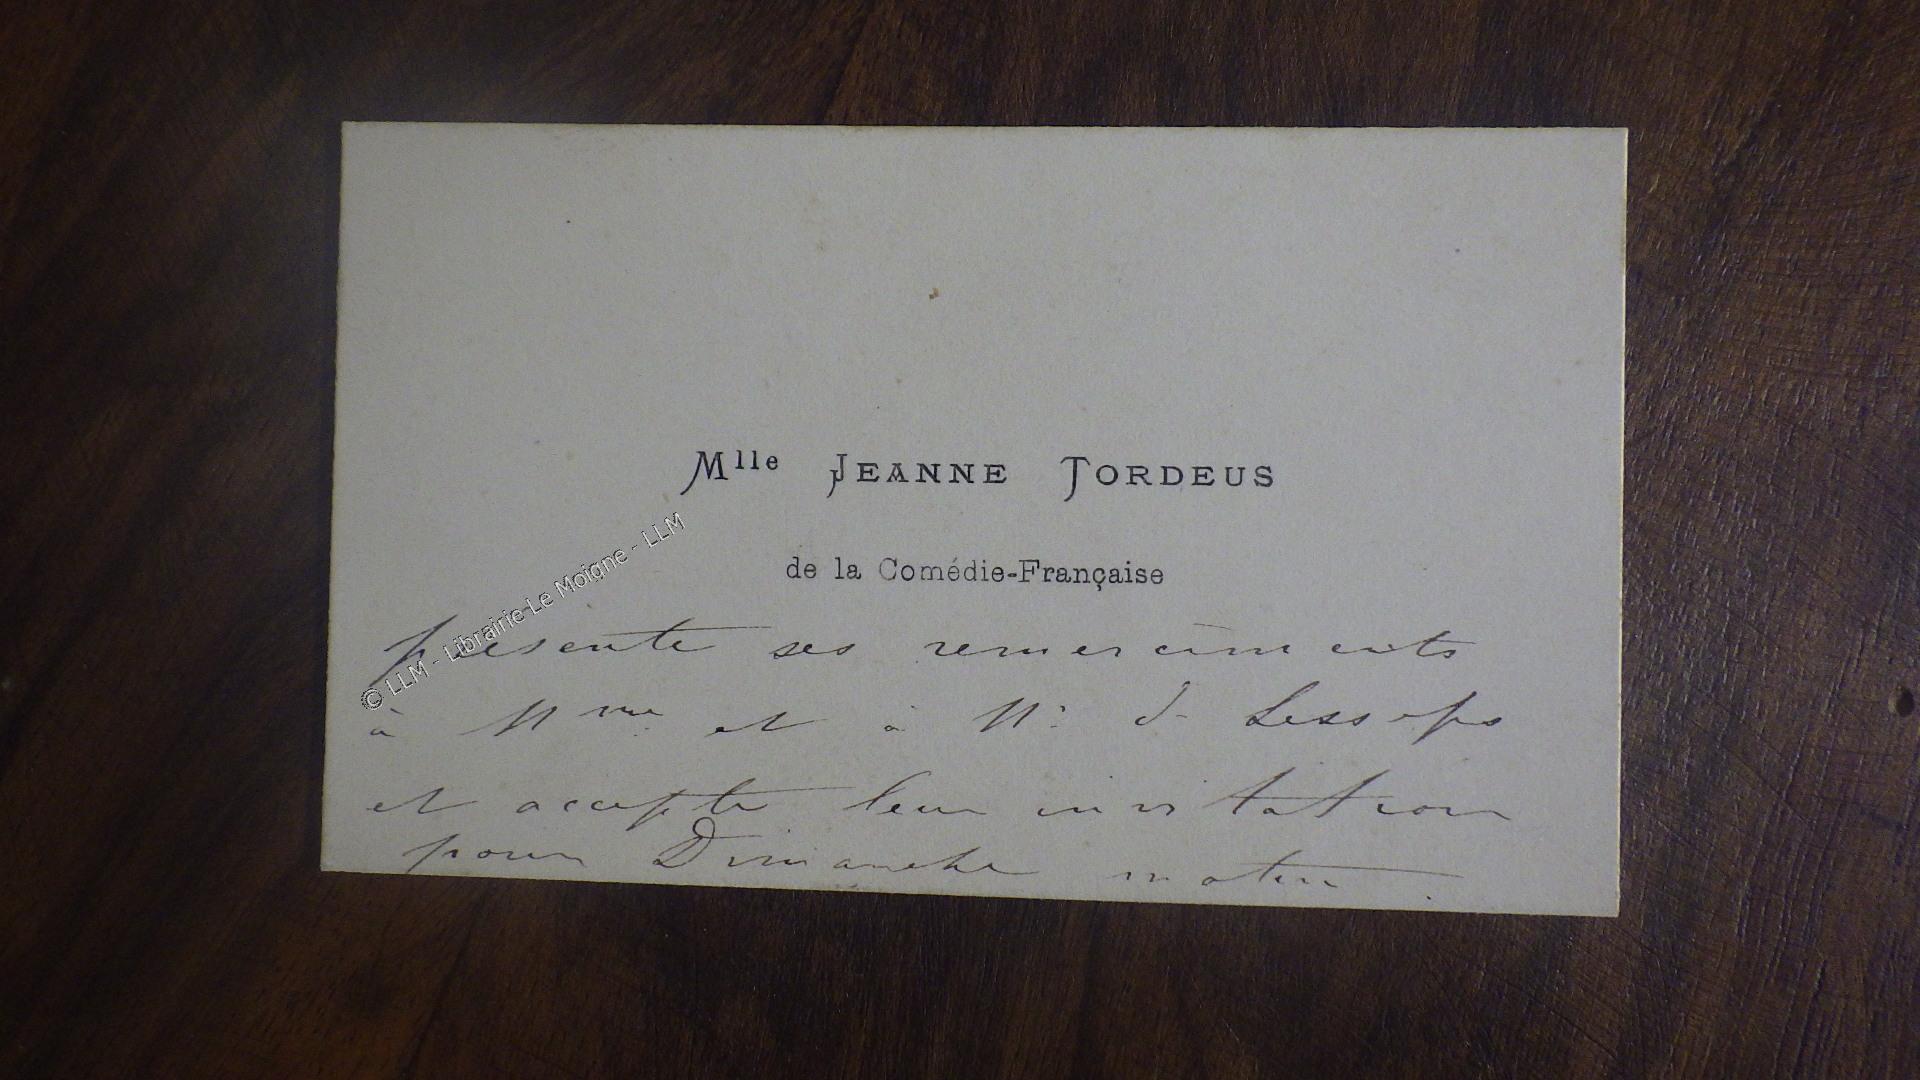 Mlle JEANNE TORDEUS
de la Comédie-Française
présente ses remerciments
à Mme et à Mr de Lesseps
et accepte leur invitation
pour Dimanche matin.
© LLM - Librairie-Le Moigne - LLM